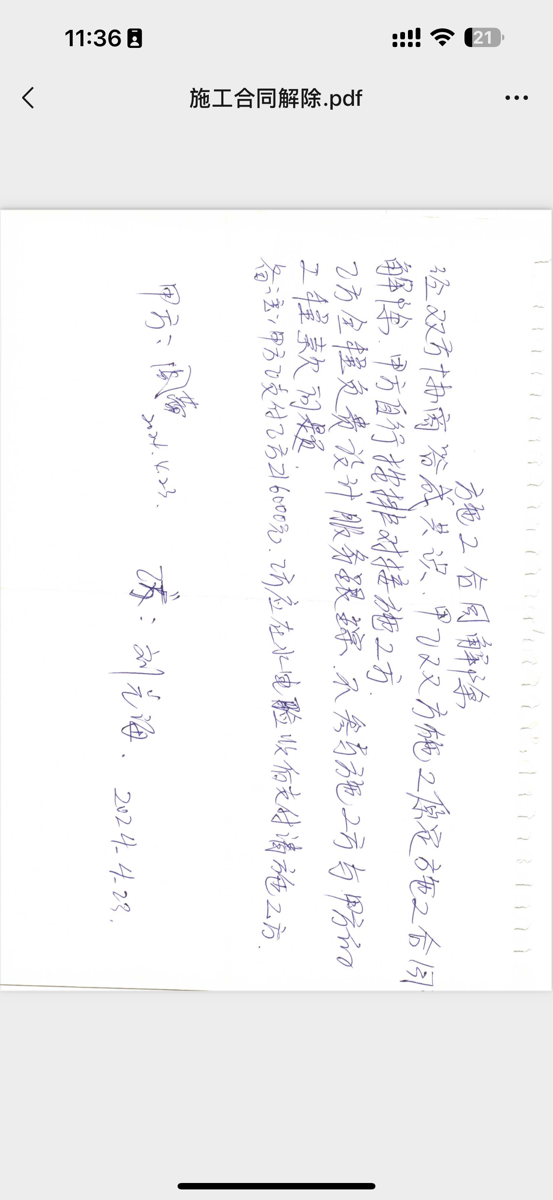 11:36
21
施工合同解除.pdf
施工合同解除
经双方协商答成共识.甲乙双方施工保定施工合同
解除.甲方自行安排对接施工方.
乙方全程免费设计服务跟踪.不参与施工方与甲方的
工程款问题
备注:甲方支付乙方21600元.乙方应在水电验收前支付清施工方.
甲方:
2024.4.23.
乙方:刘
2024.4.23.